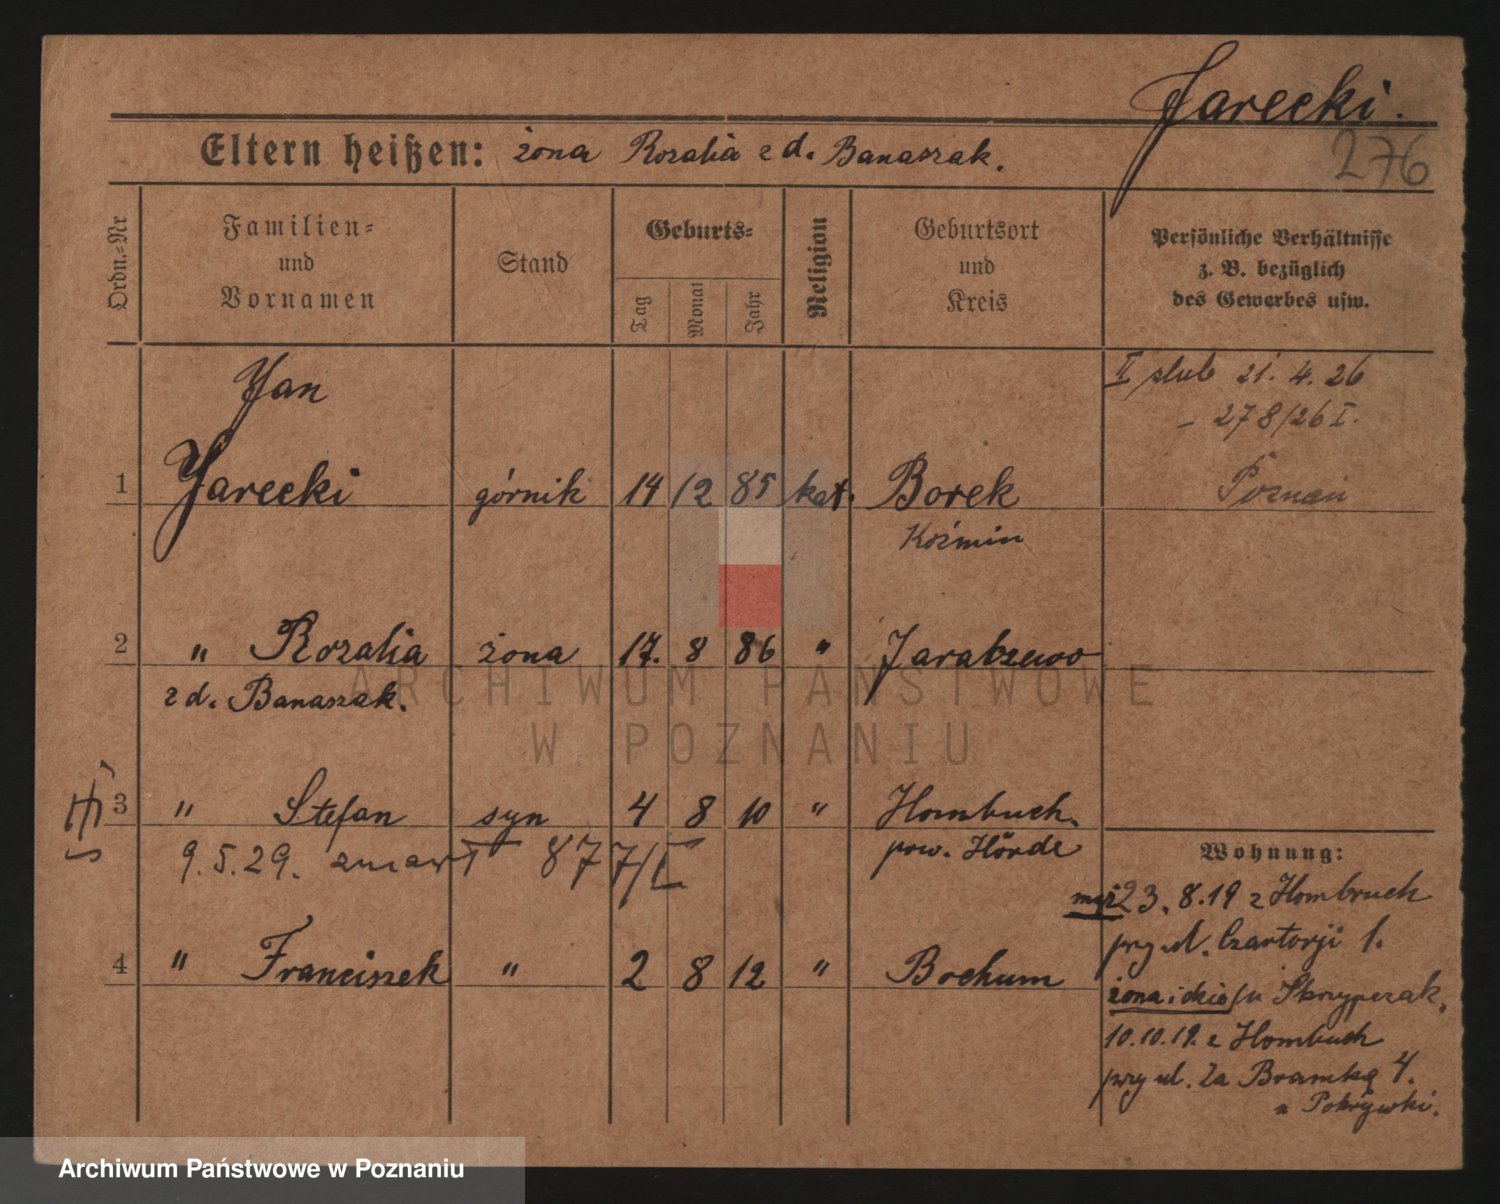 Jarecki.
276
Eltern heißen: żona Rozalia z d. Banaszak.
Ordn.=Nr
Familien=
und
Vornamen
Stand
Geburts=
Tag
Monat
Jahr
Religion
Geburtsort
und
Kreis
Persönliche Verhältnisse
z. B. bezüglich
des Gewerbes usw.
Jan
II ślub 21. 4. 26
– 278/26 I.
1 Jarecki górnik 14 12 85 kat. Borek Poznań
Koźmin
2 " Rozalia żona 17. 8 86 " Jarabzewo
z d. Banaszak.
3 " Stefan syn 4 8 10 " Hombuch.
9. 5. 29. zmarł 877/I pow. Hörde
Wohnung:
mąż 23. 8. 19 z Hombruch
przy ul. Czartorji 1.
4 " Franciszek " 2 8 12 " Bochum
żona i dzieci/u Skrzypczak.
10.10.19. z Hombuch
przy ul. Za Bramką 4.
u Pokrywki.
ARCHIWUM PAŃSTWOWE
W POZNANIU
Archiwum Państwowe w Poznaniu